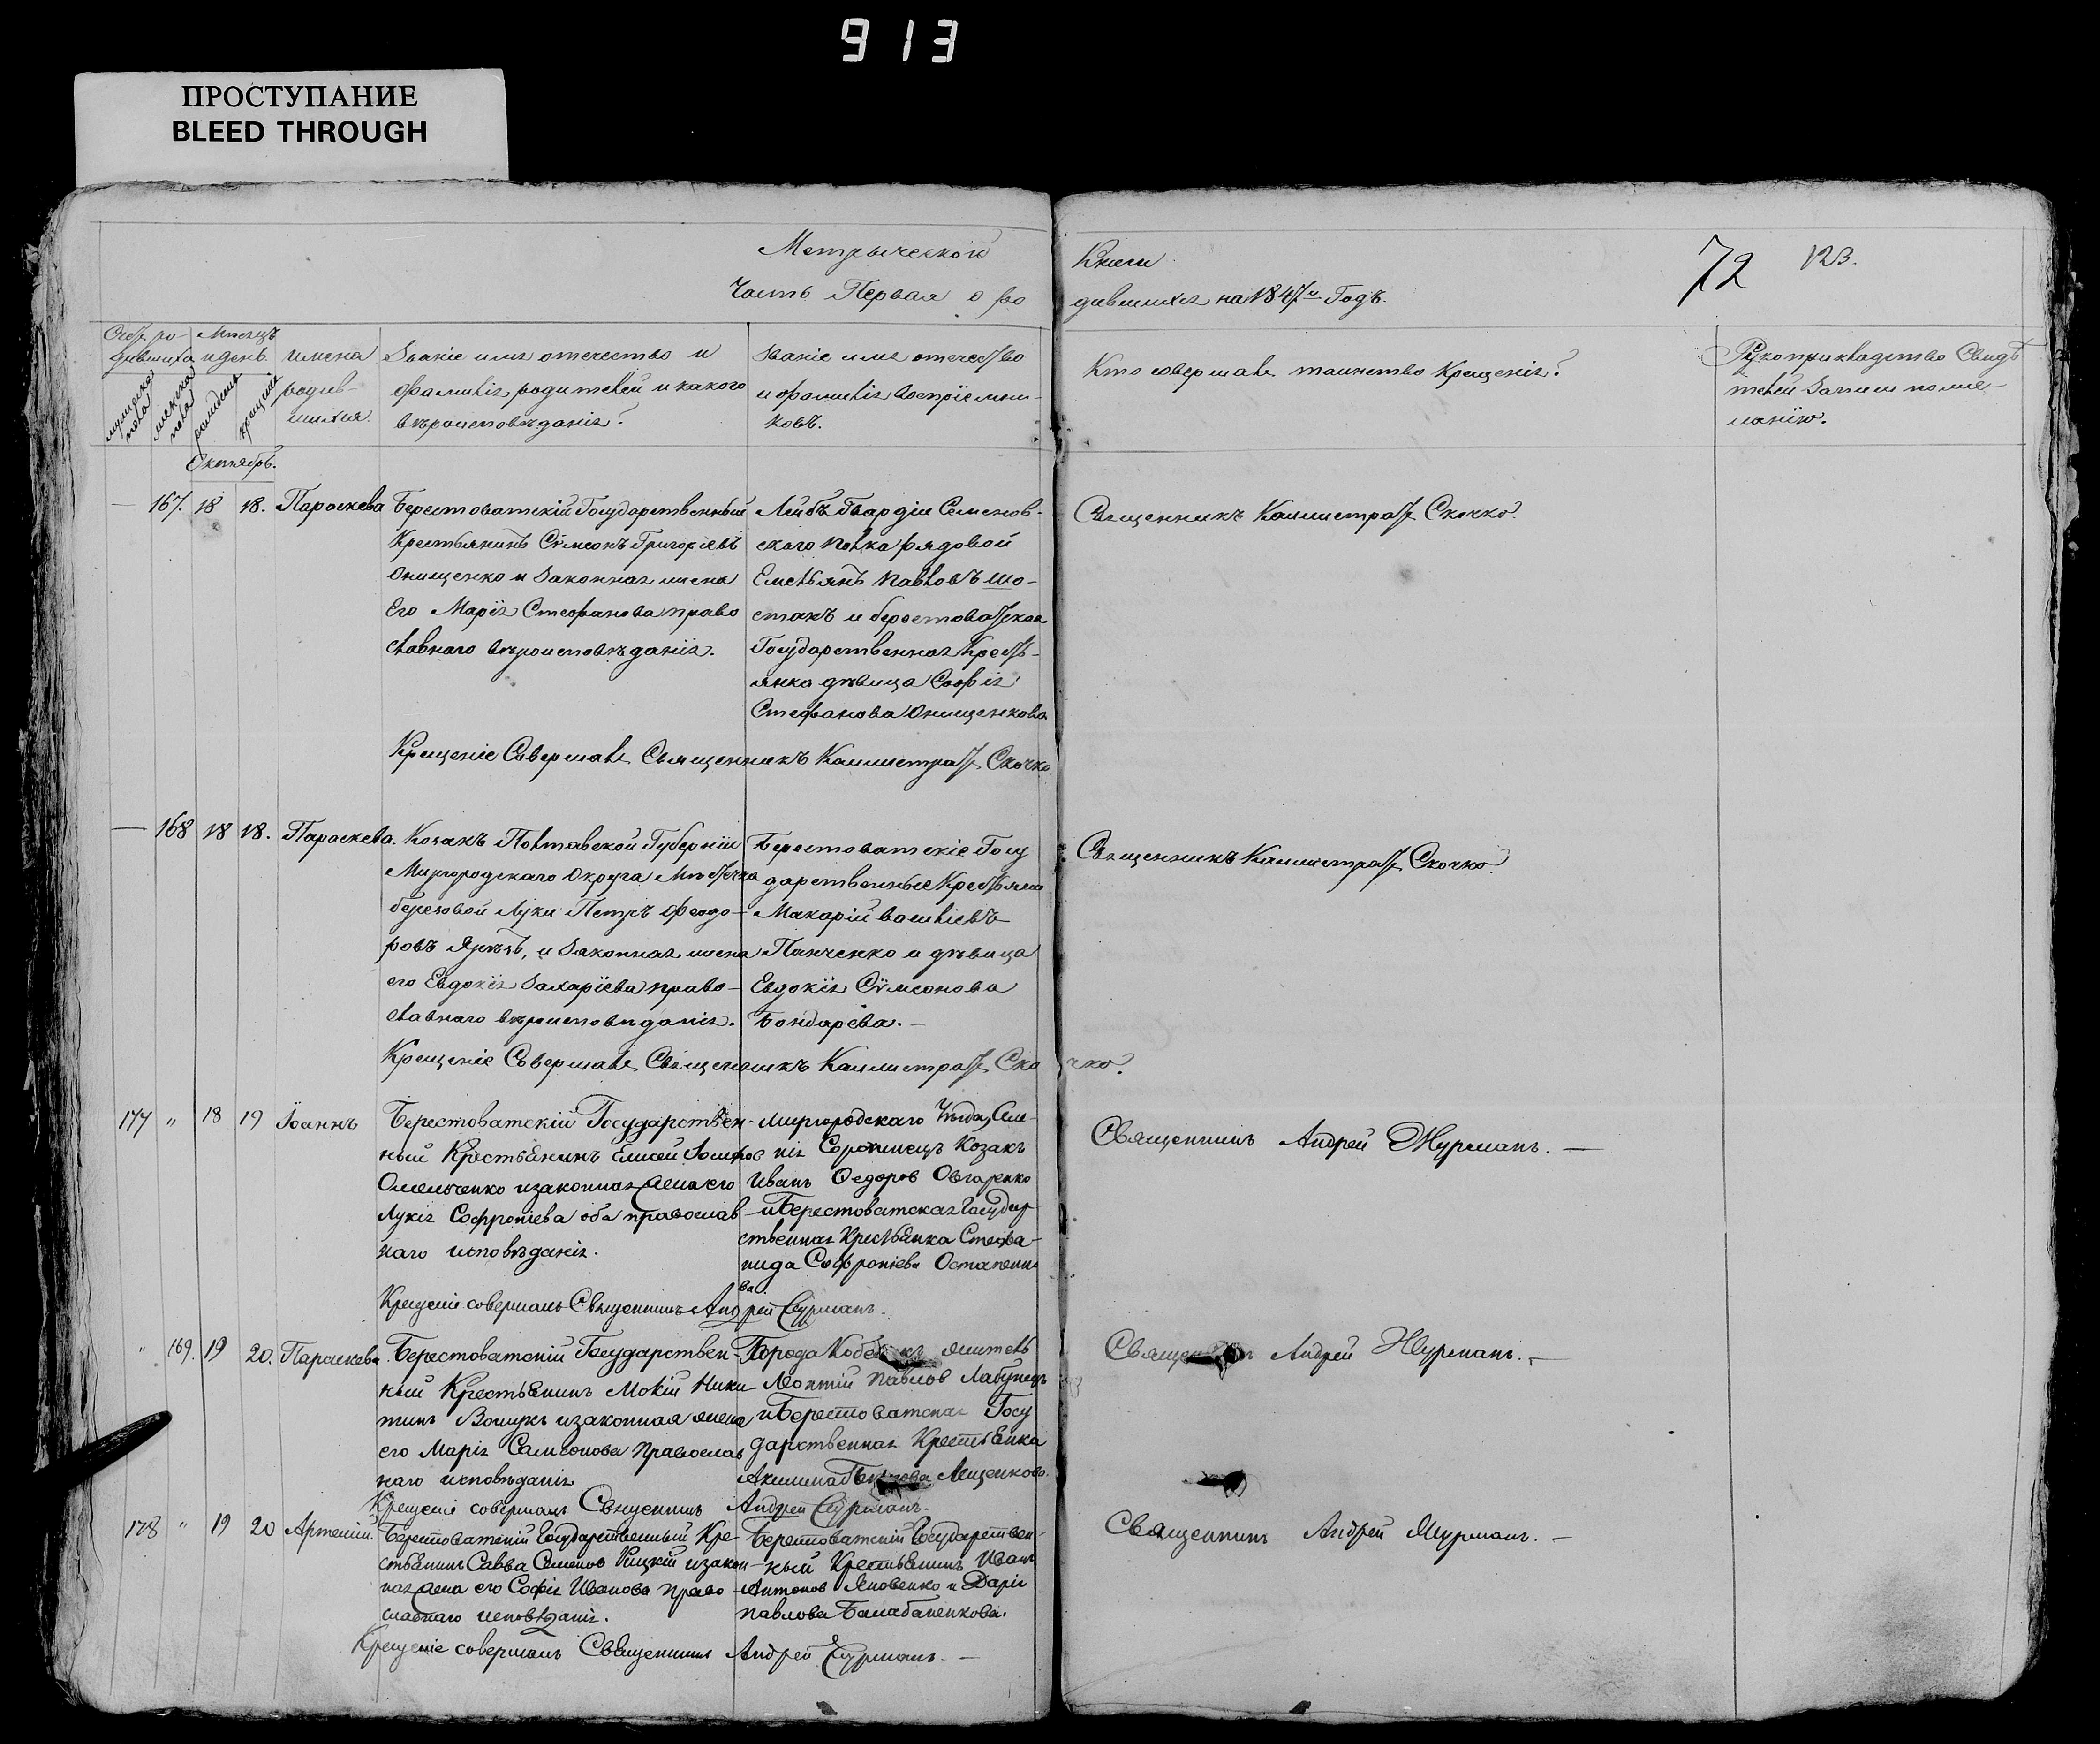 913
ПРОСТУПАНИЕ
BLEED THROUGH
Метрической Книги
72 123.
Часть Первая о родившихся на 1847й Годъ.
имена родив-
шихся
Званіе имя отечество и
фамилія родителей и какого
вѣроисповѣданія?
Званіе имя отечество
и фамилія воспріемни-
ковъ.
Кто совершалъ таинство Крещенія?
Рукоприкладство Свидѣ
телей Записи по же-
ланію.
Октябрь.
— 167. 18 18. Параскева
Берестоватскій Государственный
Крестьянинъ Сѵмеонъ Григоріевъ
Онищенко и Законная жена
Его Марія Стефанова право
славнаго вѣроисповѣданія.
Лейбъ Гвардіи Семенов-
скаго полка рядовой
Емельянъ Павловъ Шо-
стакъ и берестоватская
Государственная Кресть-
янка дѣвица Софія
Стефанова Онищенкова
Священникъ Каллистратъ Скочко.
Крещеніе Совершалъ Священникъ Каллистратъ Скочко
— 168 18 18. Параскева.
Козакъ Полтавской Губерніи
Миргородскаго Округа Мѣстечка
березовой Луки Петръ Феодо-
ровъ и Законная жена
его Евдокія Захаріева право-
славнаго вѣроисповѣданія.
Берестоватскіе Госу
дарственные Крестьяне
Макарій Василіевъ
Панченко и дѣвица
Евдокія Сѵмеонова
Бондарева. —
Священникъ Каллистратъ Скочко.
Крещеніе Совершалъ Священникъ Каллистратъ Скочко.
177 „ 18 19 Іоаннъ
Берестоватскій Государствен-
ный Крестьянинъ Елисей
Омельченко и законная жена его
Лукія Софроніева оба православ
наго исповѣданія.
Миргородскаго Уѣзда, Селе-
нія Сорочинецъ Козакъ
Иванъ Федоров Овчаренко
и Берестоватская Государ
ственная Крестьянка Стефа-
нида Софроніева Остапенко
ва.
Священникъ Андрей Журманъ. —
Крещеніе совершалъ Священникъ Андрей Журманъ.
„ 169. 19 20. Параскева.
Берестоватскій Государствен-
ный Крестьянинъ Мокій Ники
тинъ и законная жена
его Марія Самсонова Православ
наго исповѣданія
Города житель
Леонтій Павлов Лабунецъ
и Берестоватская Госу
дарственная Крестьянка
Акилина Лещенкова.
Священникъ Андрей Журманъ. —
Крещеніе совершалъ Священникъ Андрей Журманъ.
178 „ 19 20 Артемій.
Берестоватскій Государственный Кре-
стьянинъ Савва Семенов и закон-
ная жена его Софія Иванова право
славнаго исповѣданія.
Берестоватскій Государствен-
ный Крестьянинъ Иванъ
Антонов Яковенко и Дарія
Павлова Балабаненкова.
Священникъ Андрей Журманъ. —
Крещеніе совершалъ Священникъ Андрей Журманъ. —